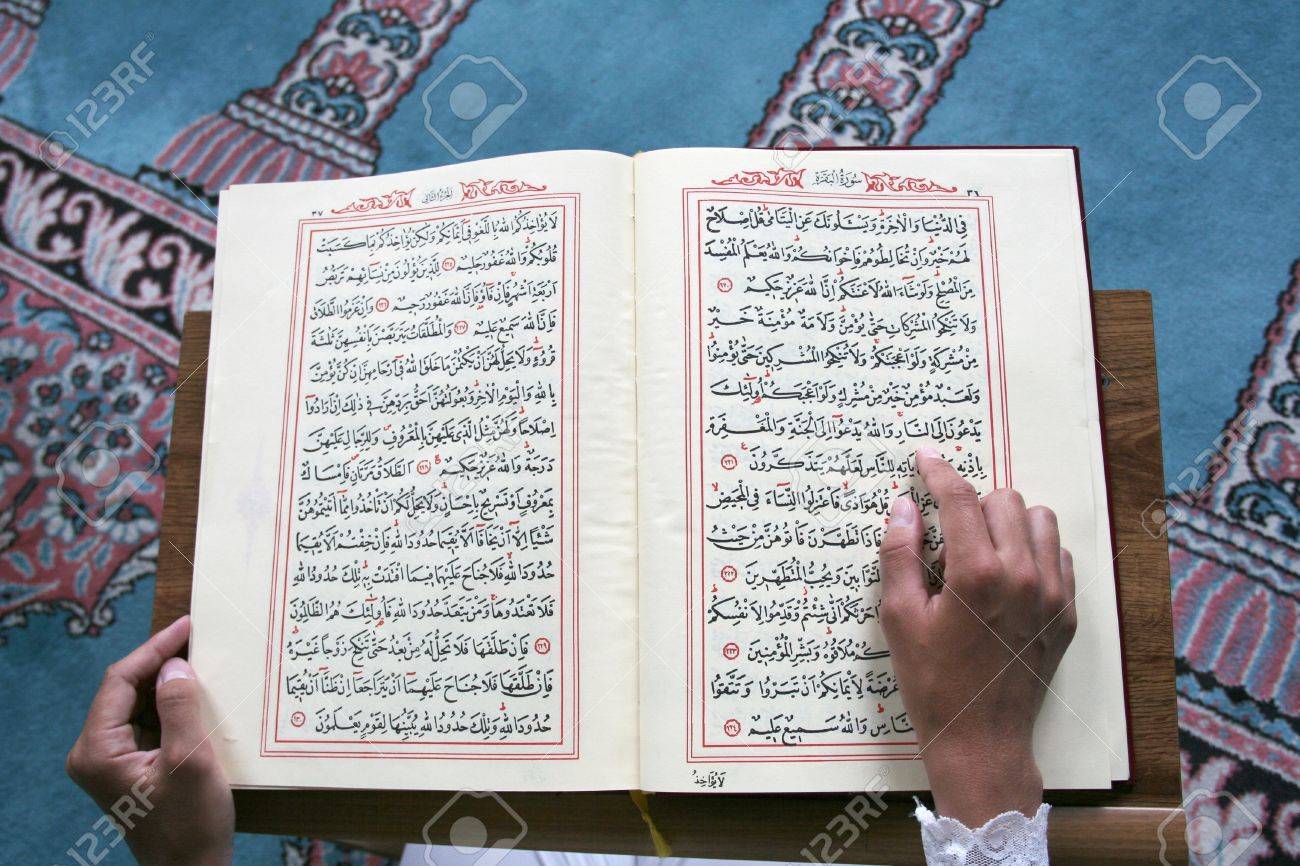 سُورَةُ الْبَقَرَةِ ٣٦
فِي الدُّنْيَا وَالْاٰخِرَةِ وَيَسْـَٔلُونَكَ عَنِ الْيَتَامٰى قُلْ اِصْلَاحٌ
لَهُمْ خَيْرٌ وَاِنْ تُخَالِطُوهُمْ فَاِخْوَانُكُمْ وَاللّٰهُ يَعْلَمُ الْمُفْسِدَ
مِنَ الْمُصْلِحِ وَلَوْ شَٓاءَ اللّٰهُ لَاَعْنَتَكُمْ اِنَّ اللّٰهَ عَزِيزٌ حَكِيمٌ ٢٢٠
وَلَا تَنْكِحُوا الْمُشْرِكَاتِ حَتّٰى يُؤْمِنَّ وَلَاَمَةٌ مُؤْمِنَةٌ خَيْرٌ
مِنْ مُشْرِكَةٍ وَلَوْ اَعْجَبَتْكُمْ وَلَا تُنْكِحُوا الْمُشْرِكِينَ حَتّٰى يُؤْمِنُوا
وَلَعَبْدٌ مُؤْمِنٌ خَيْرٌ مِنْ مُشْرِكٍ وَلَوْ اَعْجَبَكُمْ اُو۬لٰٓئِكَ
يَدْعُونَ اِلَى النَّارِ وَاللّٰهُ يَدْعُٓوا اِلَى الْجَنَّةِ وَالْمَغْفِرَةِ
بِاِذْنِهِ اٰيَاتِهِ لِلنَّاسِ لَعَلَّهُمْ يَتَذَكَّرُونَ ٢٢١
قُلْ هُوَ اَذًى فَاعْتَزِلُوا النِّسَٓاءَ فِي الْمَحِيضِ
فَاِذَا تَطَهَّرْنَ فَأْتُوهُنَّ مِنْ حَيْثُ
التَّوَّابِينَ وَيُحِبُّ الْمُتَطَهِّرِينَ ٢٢٢
حَرْثَكُمْ اَنّٰى شِئْتُمْ وَقَدِّمُوا لِاَنْفُسِكُمْ
مُلَاقُوهُ وَبَشِّرِ الْمُؤْمِنِينَ ٢٢٣
عُرْضَةً لِاَيْمَانِكُمْ اَنْ تَبَرُّوا وَتَتَّقُوا
النَّاسِ وَاللّٰهُ سَمِيعٌ عَلِيمٌ ٢٢٤
لَا يُؤَاخِذُ
اَلْجُزْءُ الثَّانِي ٣٧
لَا يُؤَاخِذُكُمُ اللّٰهُ بِاللَّغْوِ فِٓي اَيْمَانِكُمْ وَلٰكِنْ يُؤَاخِذُكُمْ بِمَا كَسَبَتْ
قُلُوبُكُمْ وَاللّٰهُ غَفُورٌ حَلِيمٌ ٢٢٥ لِلَّذِينَ يُؤْلُونَ مِنْ نِسَٓائِهِمْ تَرَبُّصُ
اَرْبَعَةِ اَشْهُرٍ فَاِنْ فَٓاؤُ۫ فَاِنَّ اللّٰهَ غَفُورٌ رَحِيمٌ ٢٢٦ وَاِنْ عَزَمُوا الطَّلَاقَ
فَاِنَّ اللّٰهَ سَمِيعٌ عَلِيمٌ ٢٢٧ وَالْمُطَلَّقَاتُ يَتَرَبَّصْنَ بِاَنْفُسِهِنَّ ثَلٰثَةَ
قُرُٓوءٍ وَلَا يَحِلُّ لَهُنَّ اَنْ يَكْتُمْنَ مَا خَلَقَ اللّٰهُ فِٓي اَرْحَامِهِنَّ اِنْ كُنَّ يُؤْمِنَّ
بِاللّٰهِ وَالْيَوْمِ الْاٰخِرِ وَبُعُولَتُهُنَّ اَحَقُّ بِرَدِّهِنَّ فِي ذٰلِكَ اِنْ اَرَادُٓوا
اِصْلَاحًا وَلَهُنَّ مِثْلُ الَّذِي عَلَيْهِنَّ بِالْمَعْرُوفِ وَلِلرِّجَالِ عَلَيْهِنَّ
دَرَجَةٌ وَاللّٰهُ عَزِيزٌ حَكِيمٌ ٢٢٨ اَلطَّلَاقُ مَرَّتَانِ فَاِمْسَاكٌ
بِمَعْرُوفٍ اَوْ تَسْرِيحٌ بِاِحْسَانٍ وَلَا يَحِلُّ لَكُمْ اَنْ تَأْخُذُوا مِمَّٓا اٰتَيْتُمُوهُنَّ
شَيْـًٔا اِلَّٓا اَنْ يَخَافَٓا اَلَّا يُقِيمَا حُدُودَ اللّٰهِ فَاِنْ خِفْتُمْ اَلَّا يُقِيمَا
حُدُودَ اللّٰهِ فَلَا جُنَاحَ عَلَيْهِمَا فِيمَا افْتَدَتْ بِهِ تِلْكَ حُدُودُ اللّٰهِ
فَلَا تَعْتَدُوهَا وَمَنْ يَتَعَدَّ حُدُودَ اللّٰهِ فَاُو۬لٰٓئِكَ هُمُ الظَّالِمُونَ
٢٢٩ فَاِنْ طَلَّقَهَا فَلَا تَحِلُّ لَهُ مِنْ بَعْدُ حَتّٰى تَنْكِحَ زَوْجًا غَيْرَهُ
فَاِنْ طَلَّقَهَا فَلَا جُنَاحَ عَلَيْهِمَٓا اَنْ يَتَرَاجَعَٓا اِنْ ظَنَّٓا اَنْ يُقِيمَا
حُدُودَ اللّٰهِ وَتِلْكَ حُدُودُ اللّٰهِ يُبَيِّنُهَا لِقَوْمٍ يَعْلَمُونَ ٢٣٠
123RF